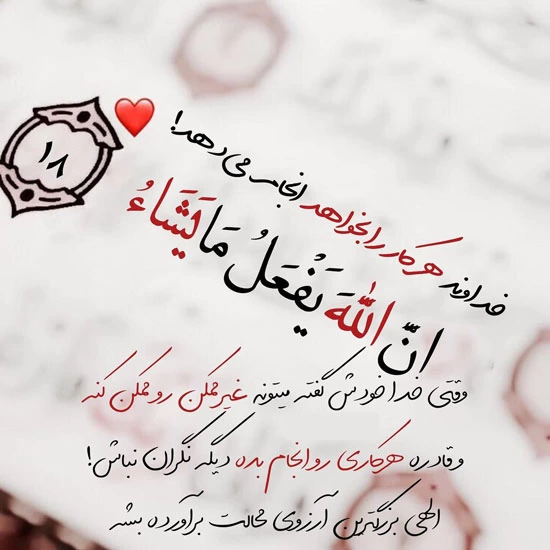 خداوند هرکار را بخواهد انجام می‌دهد!
انّ اللّٰهَ يَفْعَلُ مَا يَشَاءُ
١٨
وقتی خدا خودش گفته میتونه غیرممکن رو ممکن کنه
و قادره هرکاری رو انجام بده دیگه نگران نباش!
الهی بزرگترین آرزوی محالت برآورده بشه